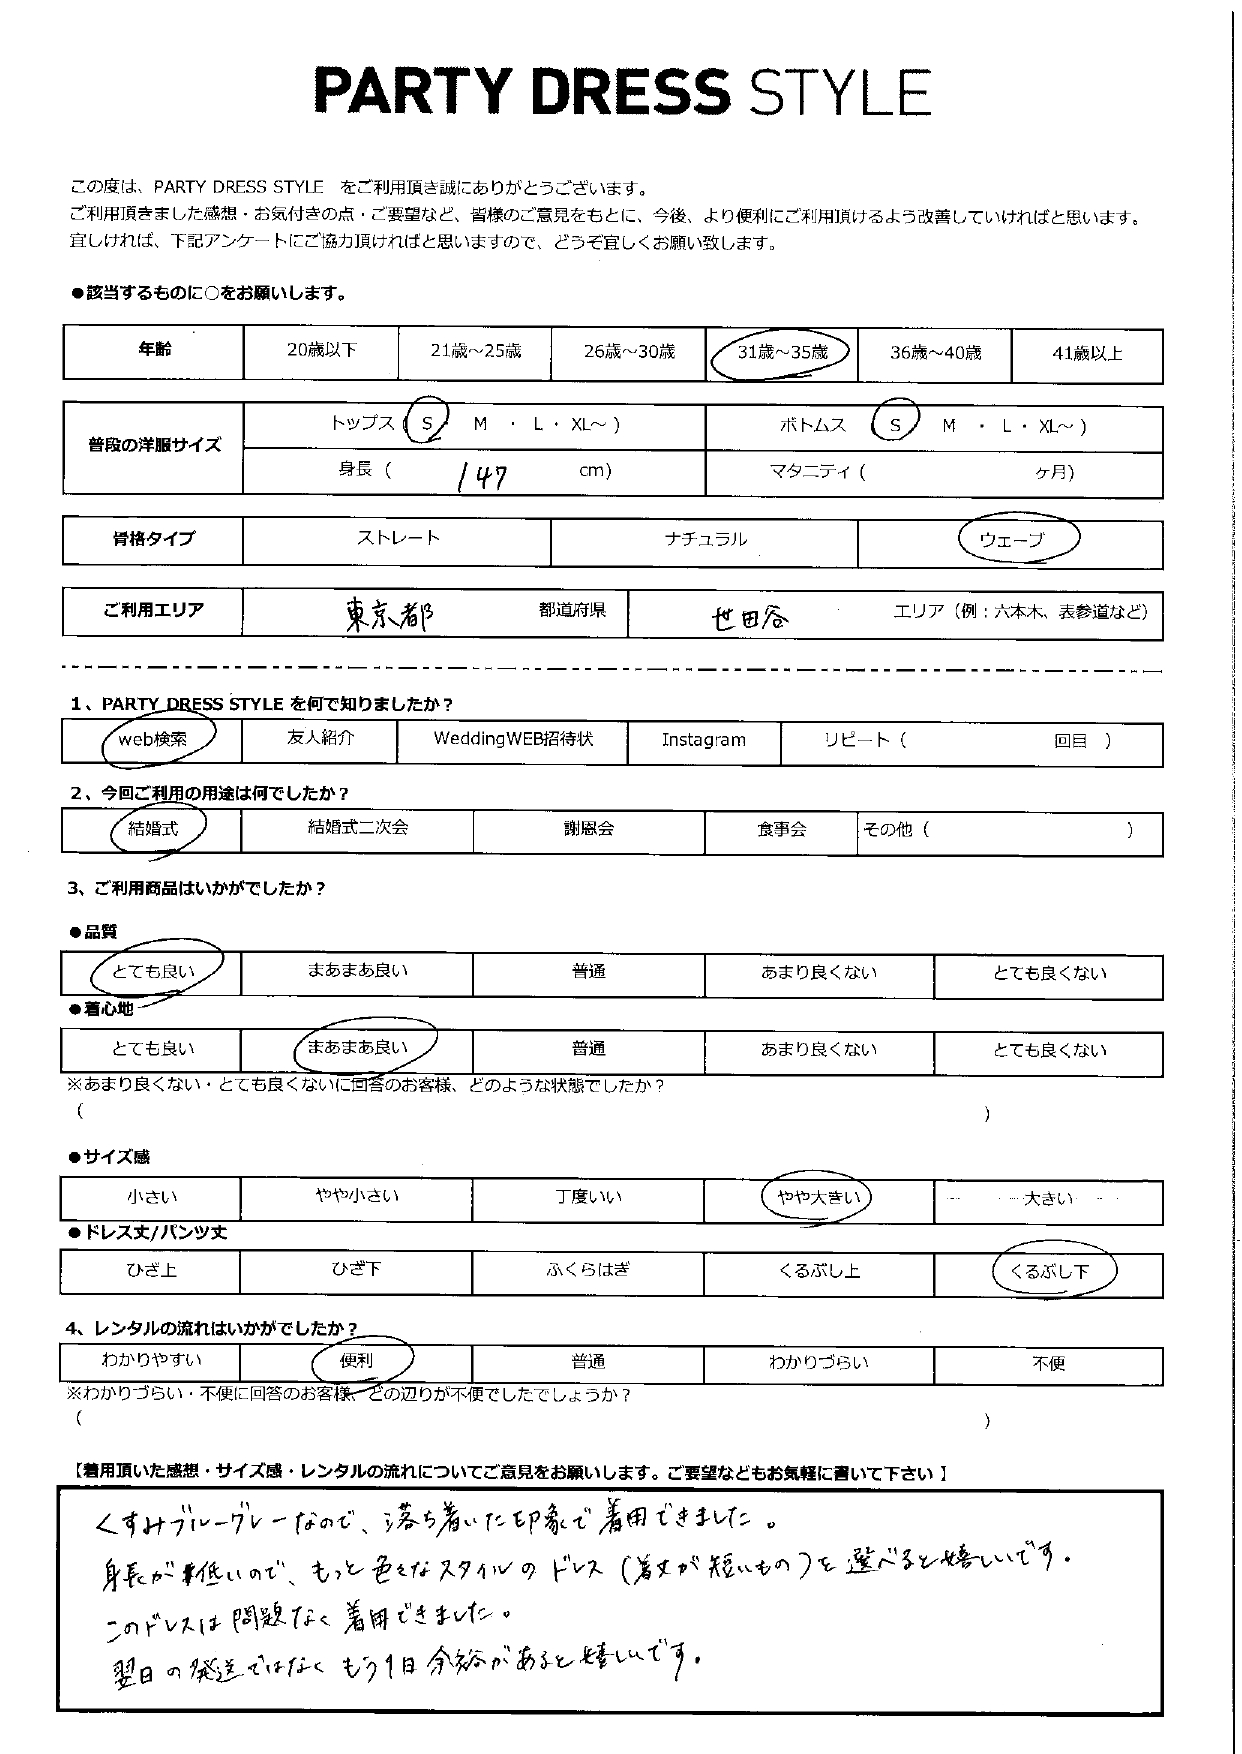 PARTY DRESS STYLE
この度は、PARTY DRESS STYLE をご利用頂き誠にありがとうございます。
ご利用頂きました感想・お気付きの点・ご要望など、皆様のご意見をもとに、今後、より便利にご利用頂けるよう改善していければと思います。
宜しければ、下記アンケートにご協力頂ければと思いますので、どうぞ宜しくお願い致します。
●該当するものに○をお願いします。
年齢 20歳以下 21歳～25歳 26歳～30歳 31歳～35歳 36歳～40歳 41歳以上
普段の洋服サイズ トップス ( S M ・ L ・ XL～ ) ボトムス ( S M ・ L ・ XL～ )
身長 ( 147 cm) マタニティ ( ヶ月)
骨格タイプ ストレート ナチュラル ウェーブ
ご利用エリア 東京都 都道府県 世田谷 エリア（例：六本木、表参道など）
1、PARTY DRESS STYLE を何で知りましたか？
web検索 友人紹介 WeddingWEB招待状 Instagram リピート ( 回目 )
2、今回ご利用の用途は何でしたか？
結婚式 結婚式二次会 謝恩会 食事会 その他 ( )
3、ご利用商品はいかがでしたか？
●品質
とても良い まあまあ良い 普通 あまり良くない とても良くない
●着心地
とても良い まあまあ良い 普通 あまり良くない とても良くない
※あまり良くない・とても良くないに回答のお客様、どのような状態でしたか？
( )
●サイズ感
小さい やや小さい 丁度いい やや大きい 大きい
●ドレス丈/パンツ丈
ひざ上 ひざ下 ふくらはぎ くるぶし上 くるぶし下
4、レンタルの流れはいかがでしたか？
わかりやすい 便利 普通 わかりづらい 不便
※わかりづらい・不便に回答のお客様、どの辺りが不便でしたでしょうか？
( )
【着用頂いた感想・サイズ感・レンタルの流れについてご意見をお願いします。ご要望などもお気軽に書いて下さい】
くすみブルーグレーなので、落ち着いた印象で着用できました。
身長が低いので、もっと色々なスタイルのドレス（着丈が短いもの）を選べると嬉しいです。
このドレスは問題なく着用できました。
翌日の発送ではなくもう1日余裕があると嬉しいです。